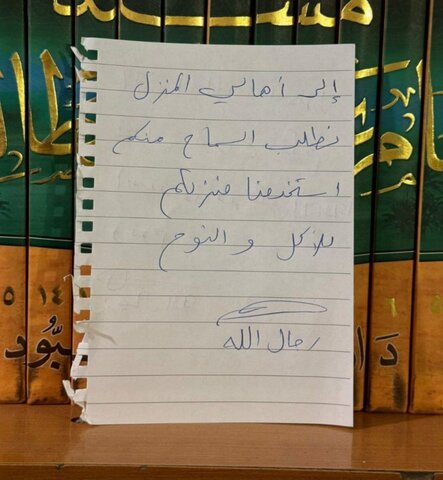 إلى أهالي المنزل
نطلب السماح منكم
استخدمنا منزلكم
للأكل و النوم
رجال الله
١٤
٥
١
دار